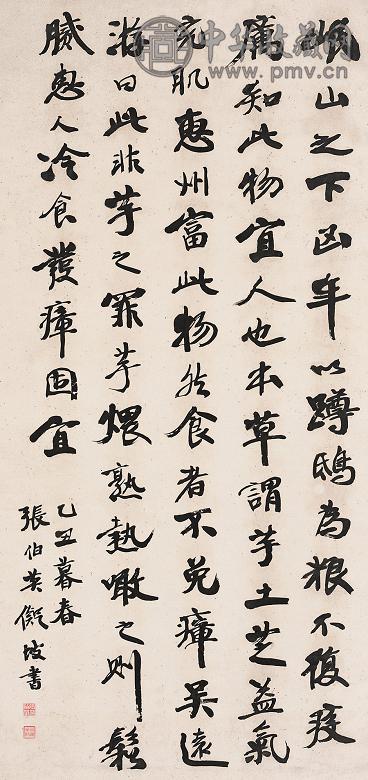 中华收藏网
www.pmv.cn
岷山之下凶年以蹲鴟為粮不復疫
癘知此物宜人也本草謂芋土芝益氣
充肌惠州富此物然食者不免瘴吴遠
游曰此非芋之罪芋煨熟熱噉之則鬆
膩惠人冷食發瘴固宜
乙丑暮春
張伯英儗坡書